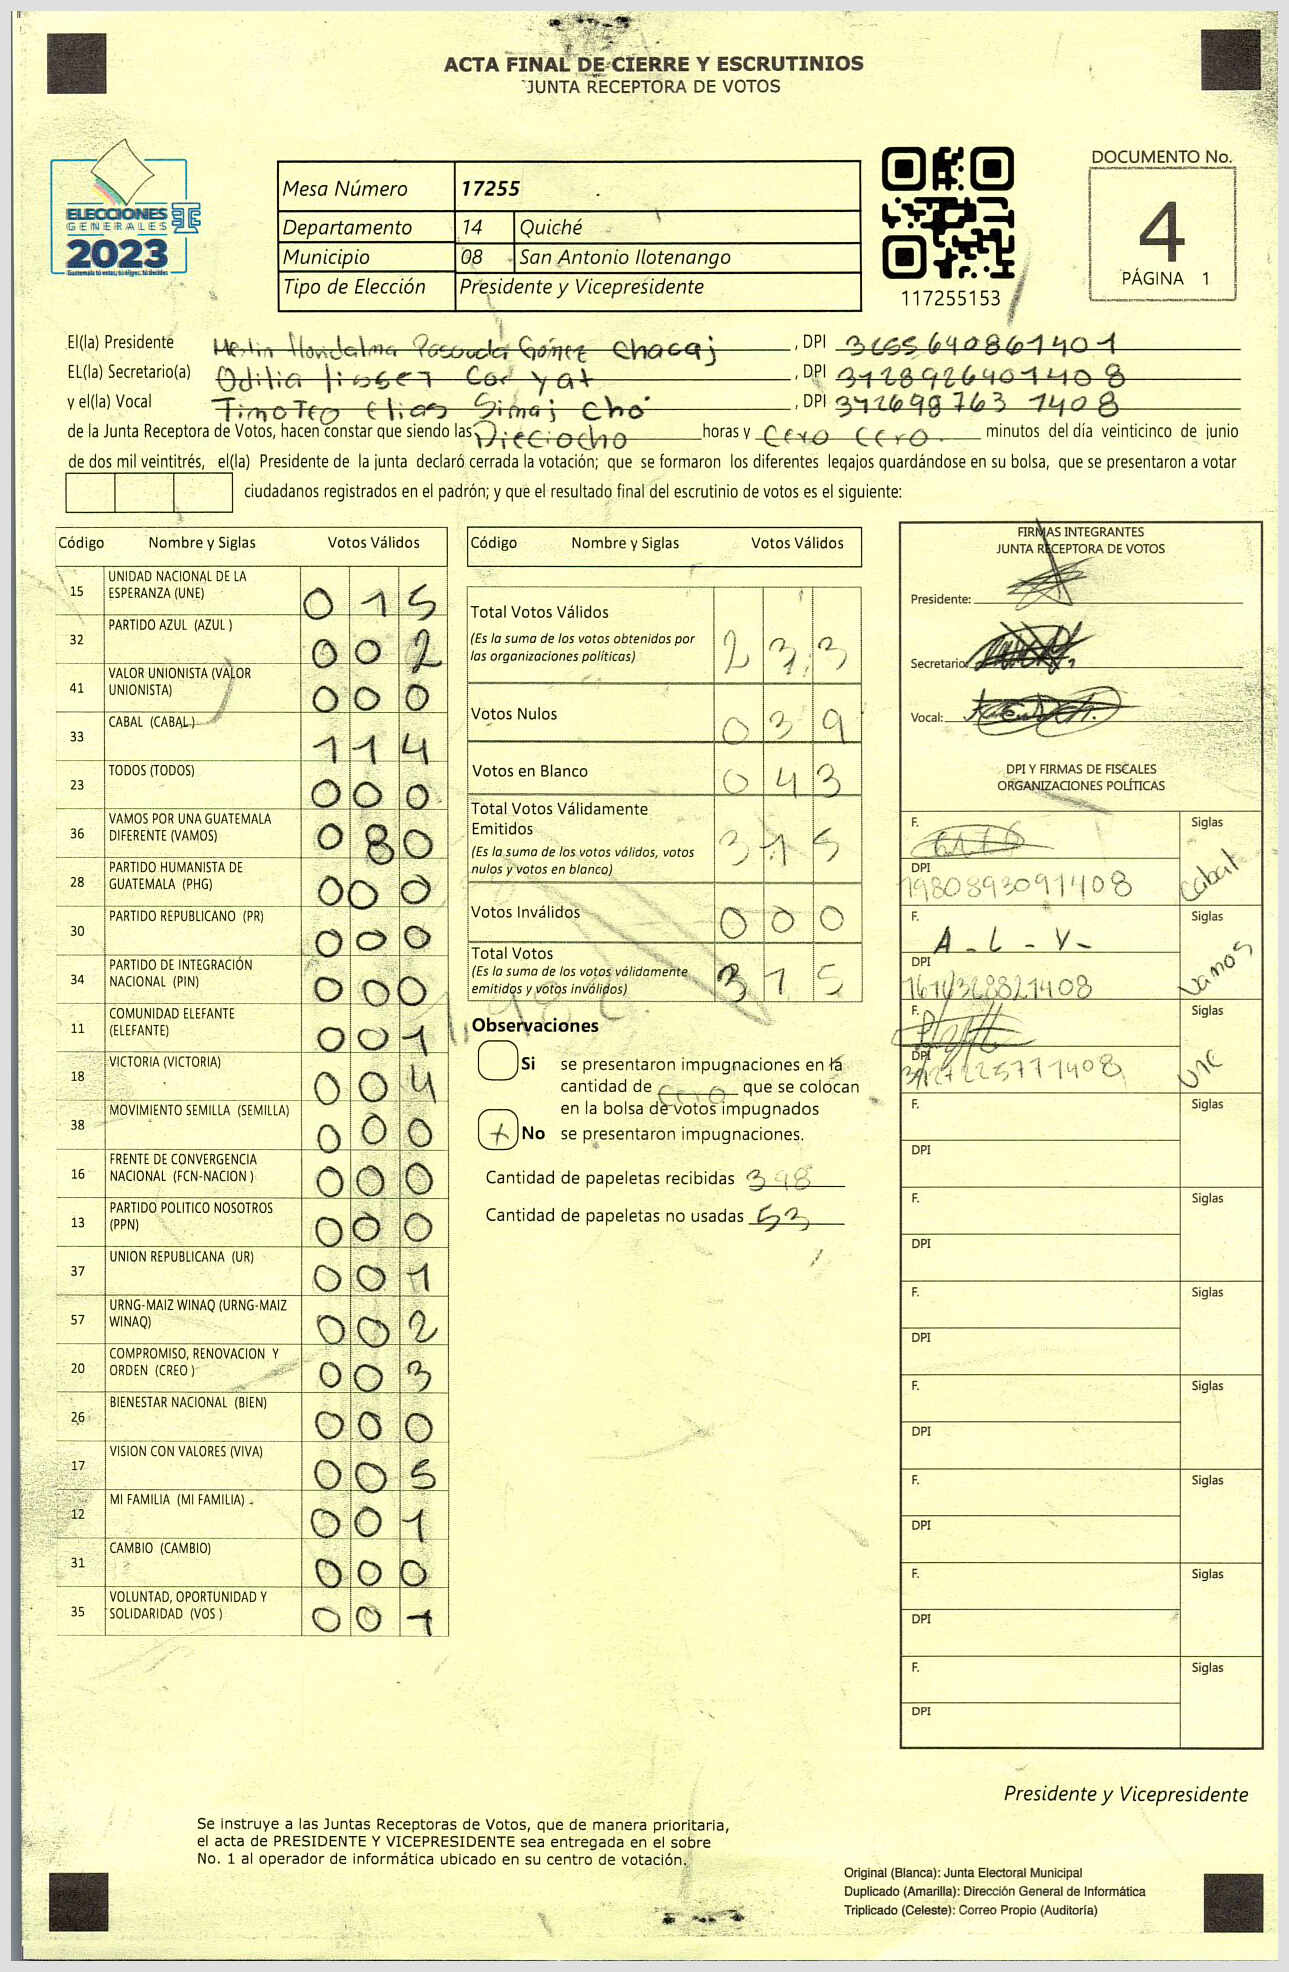 ACTA FINAL DE CIERRE Y ESCRUTINIOS
JUNTA RECEPTORA DE VOTOS
ELECCIONES
GENERALES
2023
Guatemala tú votas, tú eliges, tú decides
Mesa Número 17255
Departamento 14 Quiché
Municipio 08 San Antonio Ilotenango
Tipo de Elección Presidente y Vicepresidente
117255153
DOCUMENTO No.
4
PÁGINA 1
El(la) Presidente Gómez Chacaj , DPI 3655640861401
EL(la) Secretario(a) Odilia Cor yat , DPI 3128926401408
y el(la) Vocal Timoteo Elias Simaj Chó , DPI 312698763 1408
de la Junta Receptora de Votos, hacen constar que siendo las Dieciocho horas y cero cero minutos del día veinticinco de junio
de dos mil veintitrés, el(la) Presidente de la junta declaró cerrada la votación; que se formaron los diferentes legajos guardándose en su bolsa, que se presentaron a votar
ciudadanos registrados en el padrón; y que el resultado final del escrutinio de votos es el siguiente:
Código Nombre y Siglas Votos Válidos
15 UNIDAD NACIONAL DE LA ESPERANZA (UNE) 0 1 5
32 PARTIDO AZUL (AZUL ) 0 0 2
41 VALOR UNIONISTA (VALOR UNIONISTA) 0 0 0
33 CABAL (CABAL ) 1 1 4
23 TODOS (TODOS) 0 0 0
36 VAMOS POR UNA GUATEMALA DIFERENTE (VAMOS) 0 8 0
28 PARTIDO HUMANISTA DE GUATEMALA (PHG) 0 0 0
30 PARTIDO REPUBLICANO (PR) 0 0 0
34 PARTIDO DE INTEGRACIÓN NACIONAL (PIN) 0 0 0
11 COMUNIDAD ELEFANTE (ELEFANTE) 0 0 1
18 VICTORIA (VICTORIA) 0 0 4
38 MOVIMIENTO SEMILLA (SEMILLA) 0 0 0
16 FRENTE DE CONVERGENCIA NACIONAL (FCN-NACION ) 0 0 0
13 PARTIDO POLITICO NOSOTROS (PPN) 0 0 0
37 UNION REPUBLICANA (UR) 0 0 1
57 URNG-MAIZ WINAQ (URNG-MAIZ WINAQ) 0 0 2
20 COMPROMISO, RENOVACION Y ORDEN (CREO ) 0 0 3
26 BIENESTAR NACIONAL (BIEN) 0 0 0
17 VISION CON VALORES (VIVA) 0 0 5
12 MI FAMILIA (MI FAMILIA) 0 0 1
31 CAMBIO (CAMBIO) 0 0 0
35 VOLUNTAD, OPORTUNIDAD Y SOLIDARIDAD (VOS ) 0 0 1
Código Nombre y Siglas Votos Válidos
Total Votos Válidos 2 3 3
(Es la suma de los votos obtenidos por
las organizaciones políticas)
Votos Nulos 0 3 9
Votos en Blanco 0 4 3
Total Votos Válidamente
Emitidos 3 1 5
(Es la suma de los votos válidos, votos
nulos y votos en blanco)
Votos Inválidos 0 0 0
Total Votos 3 1 5
(Es la suma de los votos válidamente
emitidos y votos inválidos)
Observaciones
Si se presentaron impugnaciones en la
cantidad de cero que se colocan
en la bolsa de votos impugnados
+ No se presentaron impugnaciones.
Cantidad de papeletas recibidas 398
Cantidad de papeletas no usadas 53
FIRMAS INTEGRANTES
JUNTA RECEPTORA DE VOTOS
Presidente:
Secretario:
Vocal:
DPI Y FIRMAS DE FISCALES
ORGANIZACIONES POLÍTICAS
F. Siglas
DPI cabal
1980893091408
F. A - L - V - Siglas
DPI vamos
F. Siglas
DPI une
F. Siglas
DPI
F. Siglas
DPI
F. Siglas
DPI
F. Siglas
DPI
F. Siglas
DPI
F. Siglas
DPI
F. Siglas
DPI
Presidente y Vicepresidente
Se instruye a las Juntas Receptoras de Votos, que de manera prioritaria,
el acta de PRESIDENTE Y VICEPRESIDENTE sea entregada en el sobre
No. 1 al operador de informática ubicado en su centro de votación.
Original (Blanca): Junta Electoral Municipal
Duplicado (Amarilla): Dirección General de Informática
Triplicado (Celeste): Correo Propio (Auditoría)